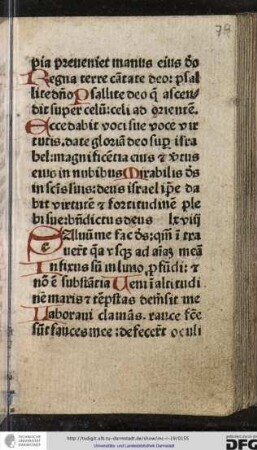 79
pia preuenĩet manus eius dõ
Regna terre cãtate deo: psal
lite dño Psallite deo q̃ ascen
dit super celũ: celi ad orientẽ.
Ecce dabit voci sue vocẽ vir
tutis. date gloriã deo suꝑ isra
hel: magnificẽtia eius ⁊ v̓tus
eius in nubibus Mirabilis ds̃
in scĩs suis: deus israel ip̃e da
bit virtutẽ ⁊ fortitudinẽ ple
bi sue: bñdictus deus lxviij
Saluũ me fac ds̃: qm̃ ĩ tra
uerũt aq̃ vsq̃ ad aĩaȝ meã
Infixus sũ in limo ꝓfũdi: ⁊
nõ ẽ substãtia Ueni ĩ altitudi
nẽ maris ⁊ tẽpstas dem̃sit me
Laboraui clamãs. rauce fce
sũt fauces mee: defecerũt oculi
TECHNISCHE UNIVERSITÄT DARMSTADT
http://tudigit.ulb.tu-darmstadt.de/show/inc-i-19/0155
Universitäts- und Landesbibliothek Darmstadt
gefördert durch die
DFG